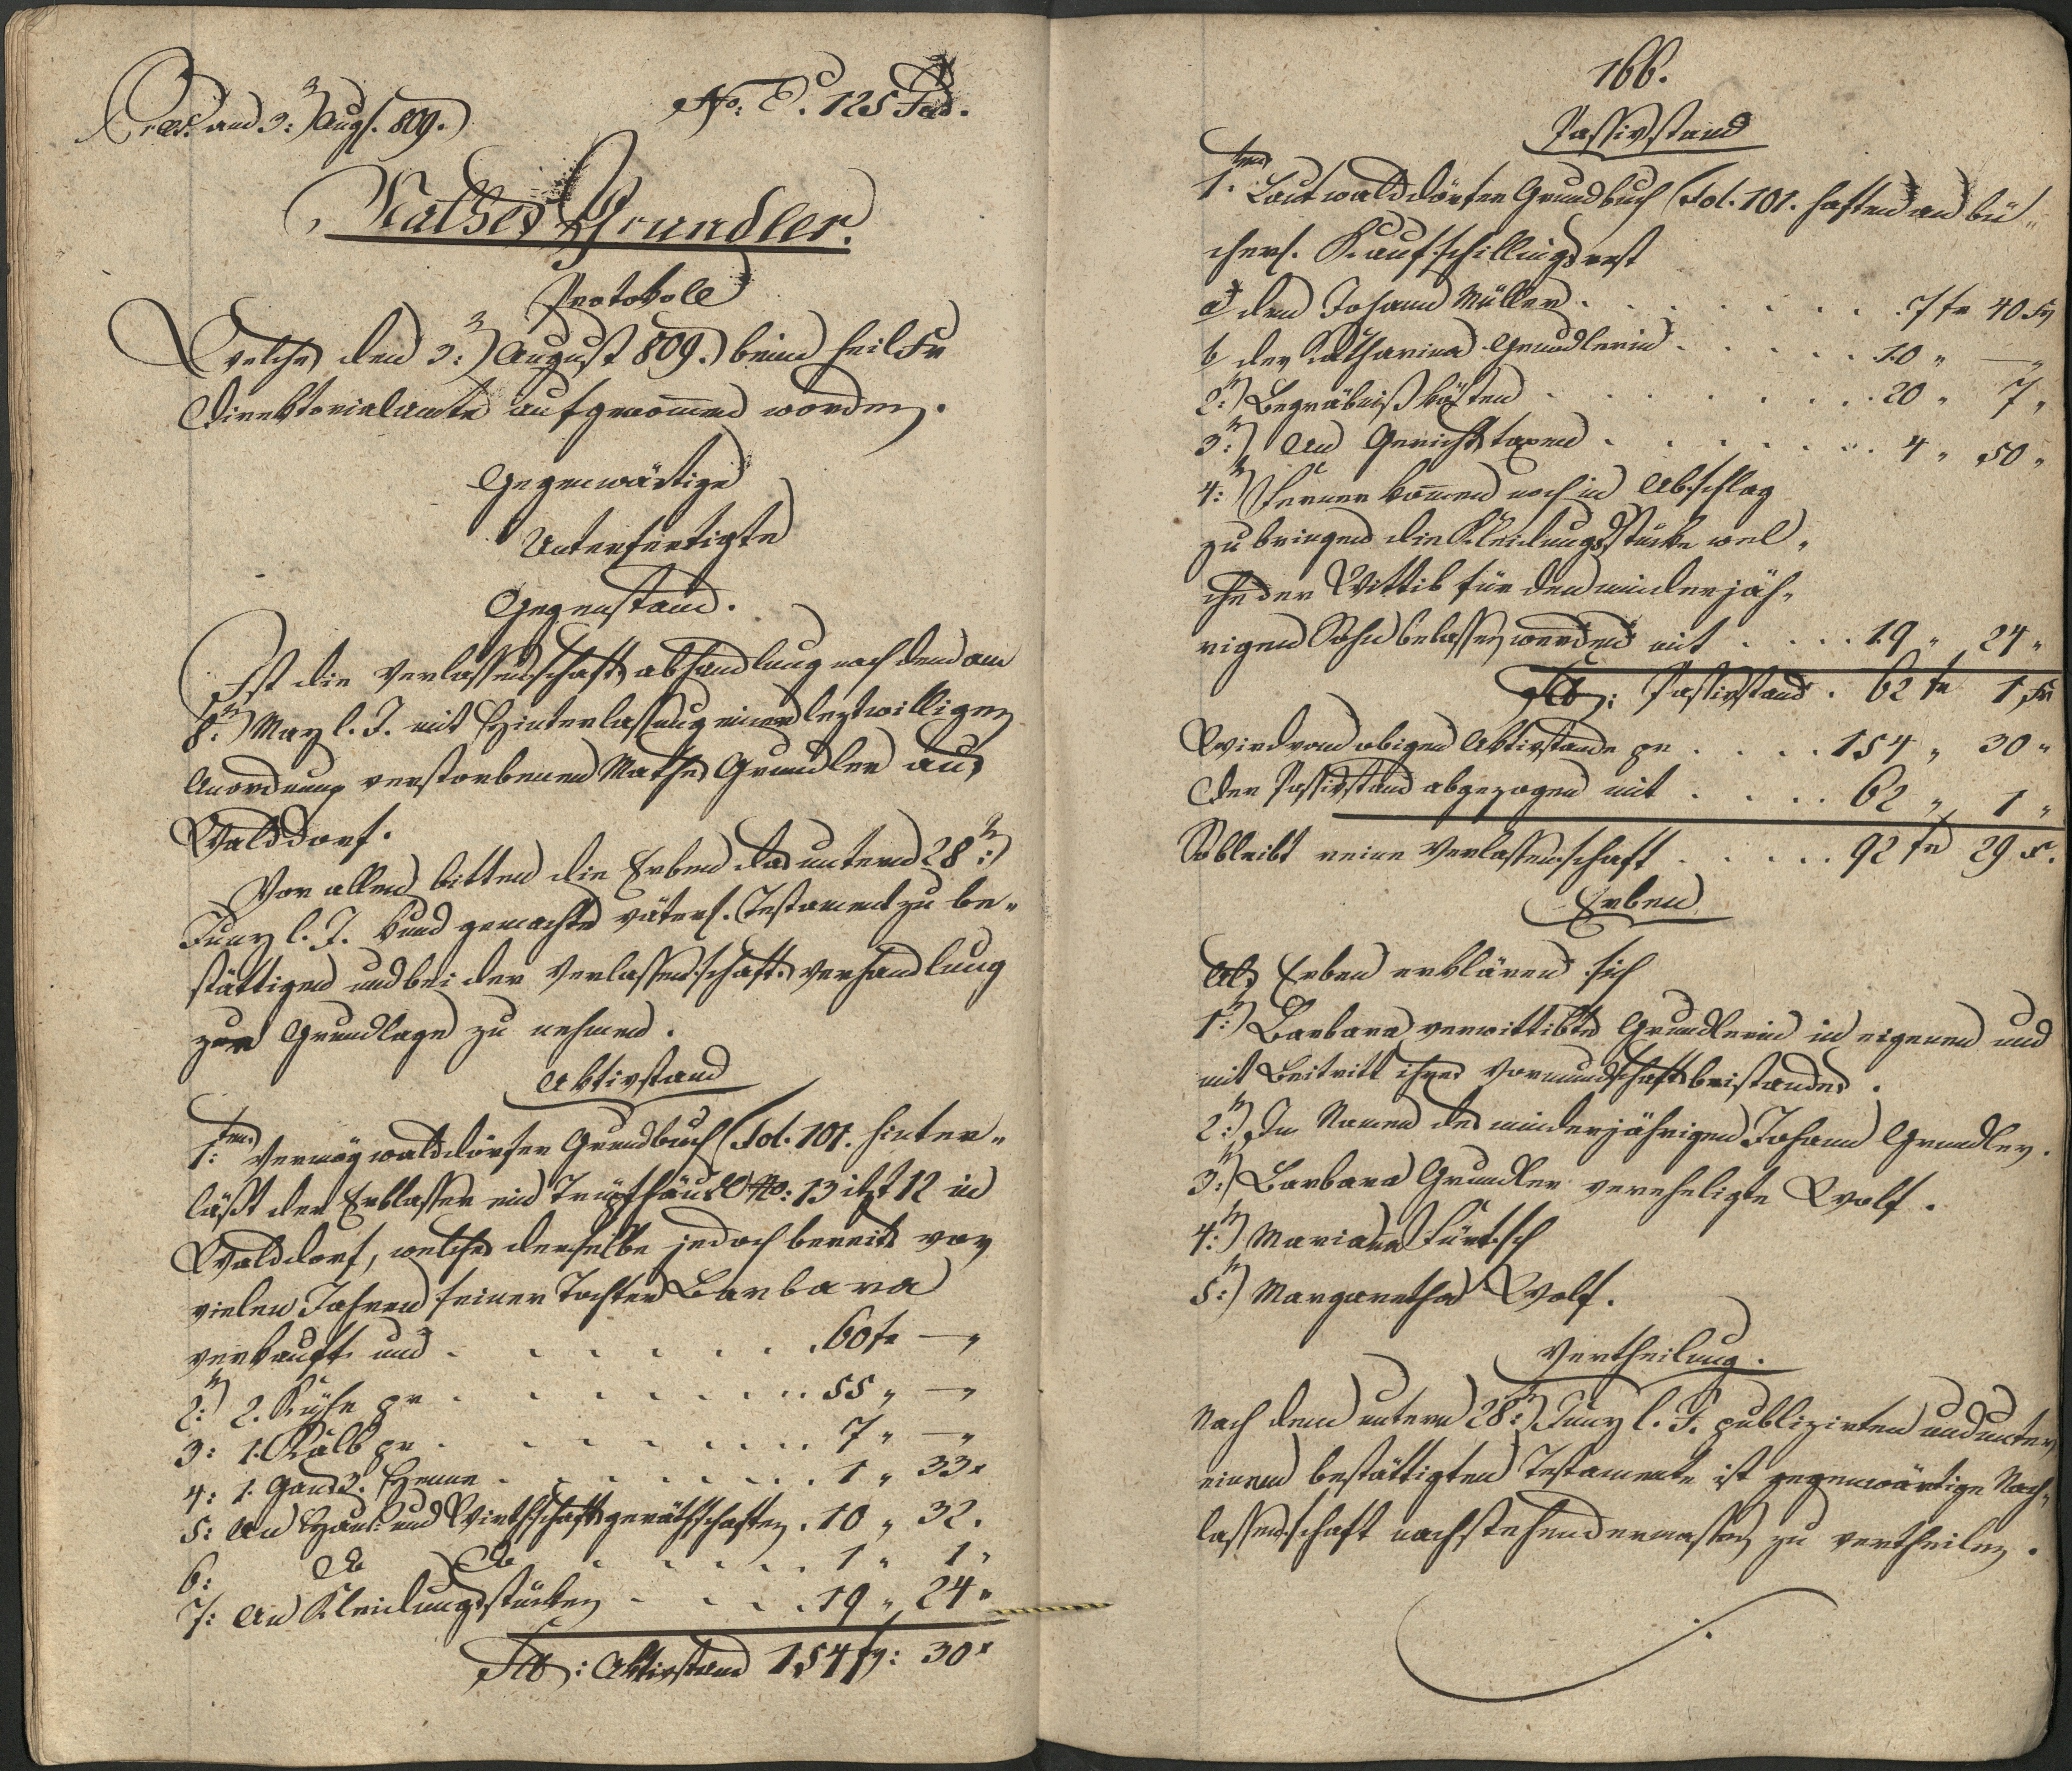 Praes. am 3:n Augs. 809.
No: E. 125 Jud.
Mathes Grundler.
Protokoll
Welches den 3:n August 809. beim
Direktorialamte aufgenommen worden.
Gegenwärtige
Unterfertigte
Gegenstand.
Ist die Verlassenschaftsabhandlung nach dem am
8:n May l. J. mit Hinterlassung einer leztwilligen
Anordnung verstorbenen Mathes Grundler aus
Walddorf.
Vor allen bitten die Erben das unterm 28:n
Juny l. J. kund gemachte väterl. Testament zu be-
stättigen und bei der Verlassenschafts verhandlung
zur Grundlage zu nehmen.
Aktivstand
1:tens Vermög walddörfer Grundbuch Fol. 101. hinter-
läßt der Erblasser ein Trüpfhäusl No: 13 itzt 12 in
Walddorf, welches derselbe jedoch bereits vor
vielen Jahren seiner Tochter Barbara
verkauft und . . . . . . 60 fr — "
2:n 2. Kühe pr . . . . . . 55 " — "
3: 1. Kalb pr . . . . . . 7 " — "
4: 1. Henne . . . . . . 1 " 33 x
5: An Haus- und Wirthschaftsgeräthschaften . 10 " 32 .
6: do do . . . . . 1 " 1 "
7: An Kleidungsstücken . . . . 19 " 24 "
Sa: Aktivstand 154 fr: 30 x
166.
Passivstand
1:tens Laut walddörfer Grundbuch Fol. 101. haften an bü-
cherl. Kaufschillingsrest
a dem Johann Müller . . . . . . 7 fr 40 Xr
b der Katharina Grundlerin . . . . . 10 " — "
2:n Begräbnißkosten . . . . . . 20 " 7 "
3:n An Gerichtstaxen . . . . . . 4 " 50 "
4:n Ferner kommen noch in Abschlag
zu bringen die Kleidungsstücke wel-
che der Wittib für den minderjäh-
rigen Sohn belassen werden mit . . . . 19 " 24 "
Sa: Passivstand . 62 fr 1 Xr
Wird vom obigen Aktivstande pr . . . . 154 " 30 "
Der Passivstand abgezogen mit . . . . 62 " 1 "
So bleibt reine Verlassenschaft . . . . . 92 fr 29 x.
Erben
Als Erben erklären sich
1:n Barbara verwittibte Grundlerin in eigenen und
mit Beitritt ihres Vormundschaftsbeistandes.
2:n Im Namen des minderjährigen Johann Grundler.
3:n Barbara Grundler verehligte Wolf.
4:n Mariana Fürtsch
5:n Margaretha Wolf.
Vertheilung.
Nach dem unterm 28:n Juny l. J. publizirten und unter
einem bestättigten Testamente ist gegenwärtige Nach-
lassenschaft nachstehendermassen zu vertheilen.